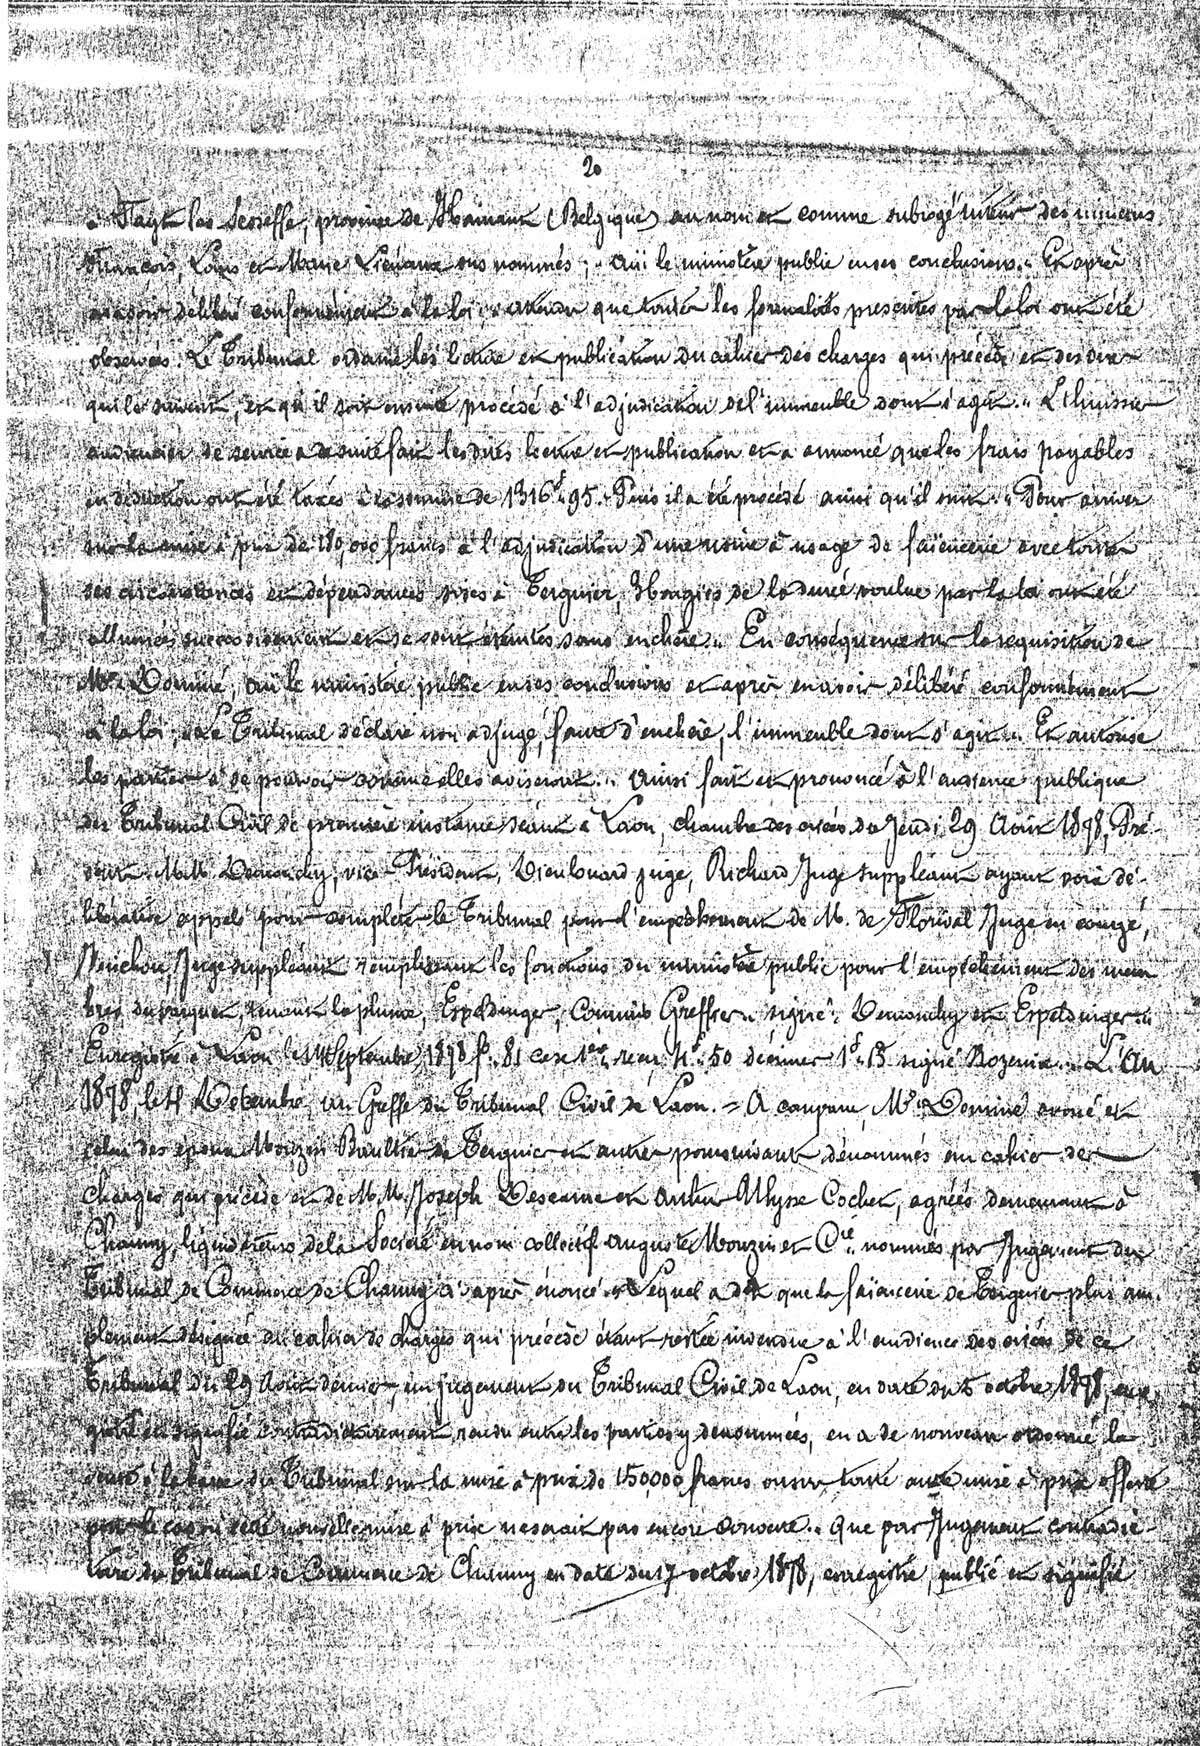 20
à Fayt les Seneffe, province de Hainaut (Belgique) au nom et comme subrogé tuteur des mineurs
François, Louis et Marie Liénaux sus nommés ; " Oui le ministère public en ses conclusions. " Et après
en avoir délibéré conformément à la loi ; " Attendu que toutes les formalités prescrites par la loi ont été
observées. Le Tribunal ordonne les lecture et publication du cahier des charges qui précède et des dires
qui le suivent, et qu'il soit ensuite procédé à l'adjudication de l'immeuble dont s'agit. " L'huissier
audiencier de service a de suite fait les dites lecture et publication et a annoncé que les frais payables
en déduction ont été taxés à la somme de 1316f 95. " Puis il a été procédé ainsi qu'il suit. " Pour arriver
sur la mise à prix de 180,000 francs à l'adjudication d'une usine à usage de faïencerie avec toutes
ses circonstances et dépendances sises à Tergnier, 3 bougies de la durée voulue par la loi ont été
allumées successivement et se sont éteintes sans enchère. " En conséquence sur la requisition de
Me Dominé, oui le ministère public en ses conclusions et après en avoir délibéré conformément
à la loi ; " Le Tribunal déclare non adjugé, faute d'enchère, l'immeuble dont s'agit. " Et autorise
les parties à se pourvoir comme elles aviseront. " Ainsi fait et prononcé à l'audience publique
du Tribunal Civil de première instance séant à Laon, chambre des criées du Jeudi 29 Août 1878, Pré-
sents M.M. Demonchy, vice-Président, Dieulouard juge, Richard Juge suppléant ayant voix dé-
libérative appelé pour compléter le Tribunal pour l'empêchement de M. de Florival Juge en congé,
Juge suppléant remplissant les fonctions du ministère public pour l'empêchement des mem
bres du parquet, tenant la plume, Espeldinger, Commis Greffier. " signé : Demonchy et Espeldinger. "
Enregistré à Laon le Septembre 1878 fo 81 case 1ère reçu 4f. 50 décimes 1f. 13 signé . " L'An
1878, le Décembre, au Greffe du Tribunal Civil de Laon. = A comparu Me Dominé avoué et
celui des époux Mouzin Baultier de Tergnier et autres poursuivants dénommés au cahier des
charges qui précède et de M.M. Joseph Descarne et Arthur Ulysse Cochet, agréés demeurant à
Chauny, liquidateurs de la Société en nom collectif Auguste Mouzin et Cie. nommés par Jugement du
Tribunal de Commerce de Chauny ci après énoncé. " Lequel a dit que la faïencerie de Tergnier plus am-
plement désignée au cahier de charges qui précède étant restée invendue à l'audience des criées de ce
Tribunal du 29 Août dernier, un jugement du Tribunal Civil de Laon, en date du 5 octobre 1878, enre-
gistré et signifié contradictoirement, rendu entre les parties y dénommées, en a de nouveau ordonné la
vente à la barre du Tribunal sur la mise à prix de 150,000 francs ou sur toute autre mise à prix offerte
pour le cas où cette nouvelle mise à prix ne serait pas encore couverte. " Que par Jugement contradic-
toire du Tribunal de Commerce de Chauny en date du 17 octobre 1878, enregistré, publié et signifié